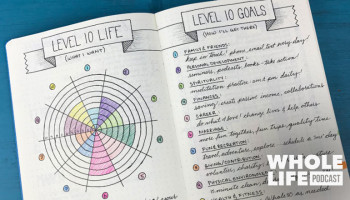 LEVEL 10 LIFE
(WHAT I WANT)
LEVEL 10 GOALS
(HOW I'LL GET THERE)
FAMILY & FRIENDS:
keep in touch! phone, email, text every day!
PERSONAL DEVELOPMENT:
seminars, podcasts, books - take action!
SPIRITUALITY:
meditation practice - am & pm daily!
FINANCES:
saving! create passive income, collaborations
CAREER:
do what I love! change lives & help others.
MARRIAGE:
more fun together, fun trips, quality time.
FUN & RECREATION:
travel, adventure, explore
GIVING/CONTRIBUTION:
volunteer, charity
PHYSICAL ENVIRONMENT:
10 minute clean,
HEALTH & FITNESS:
as needed
WHOLE
LIFE PODCAST